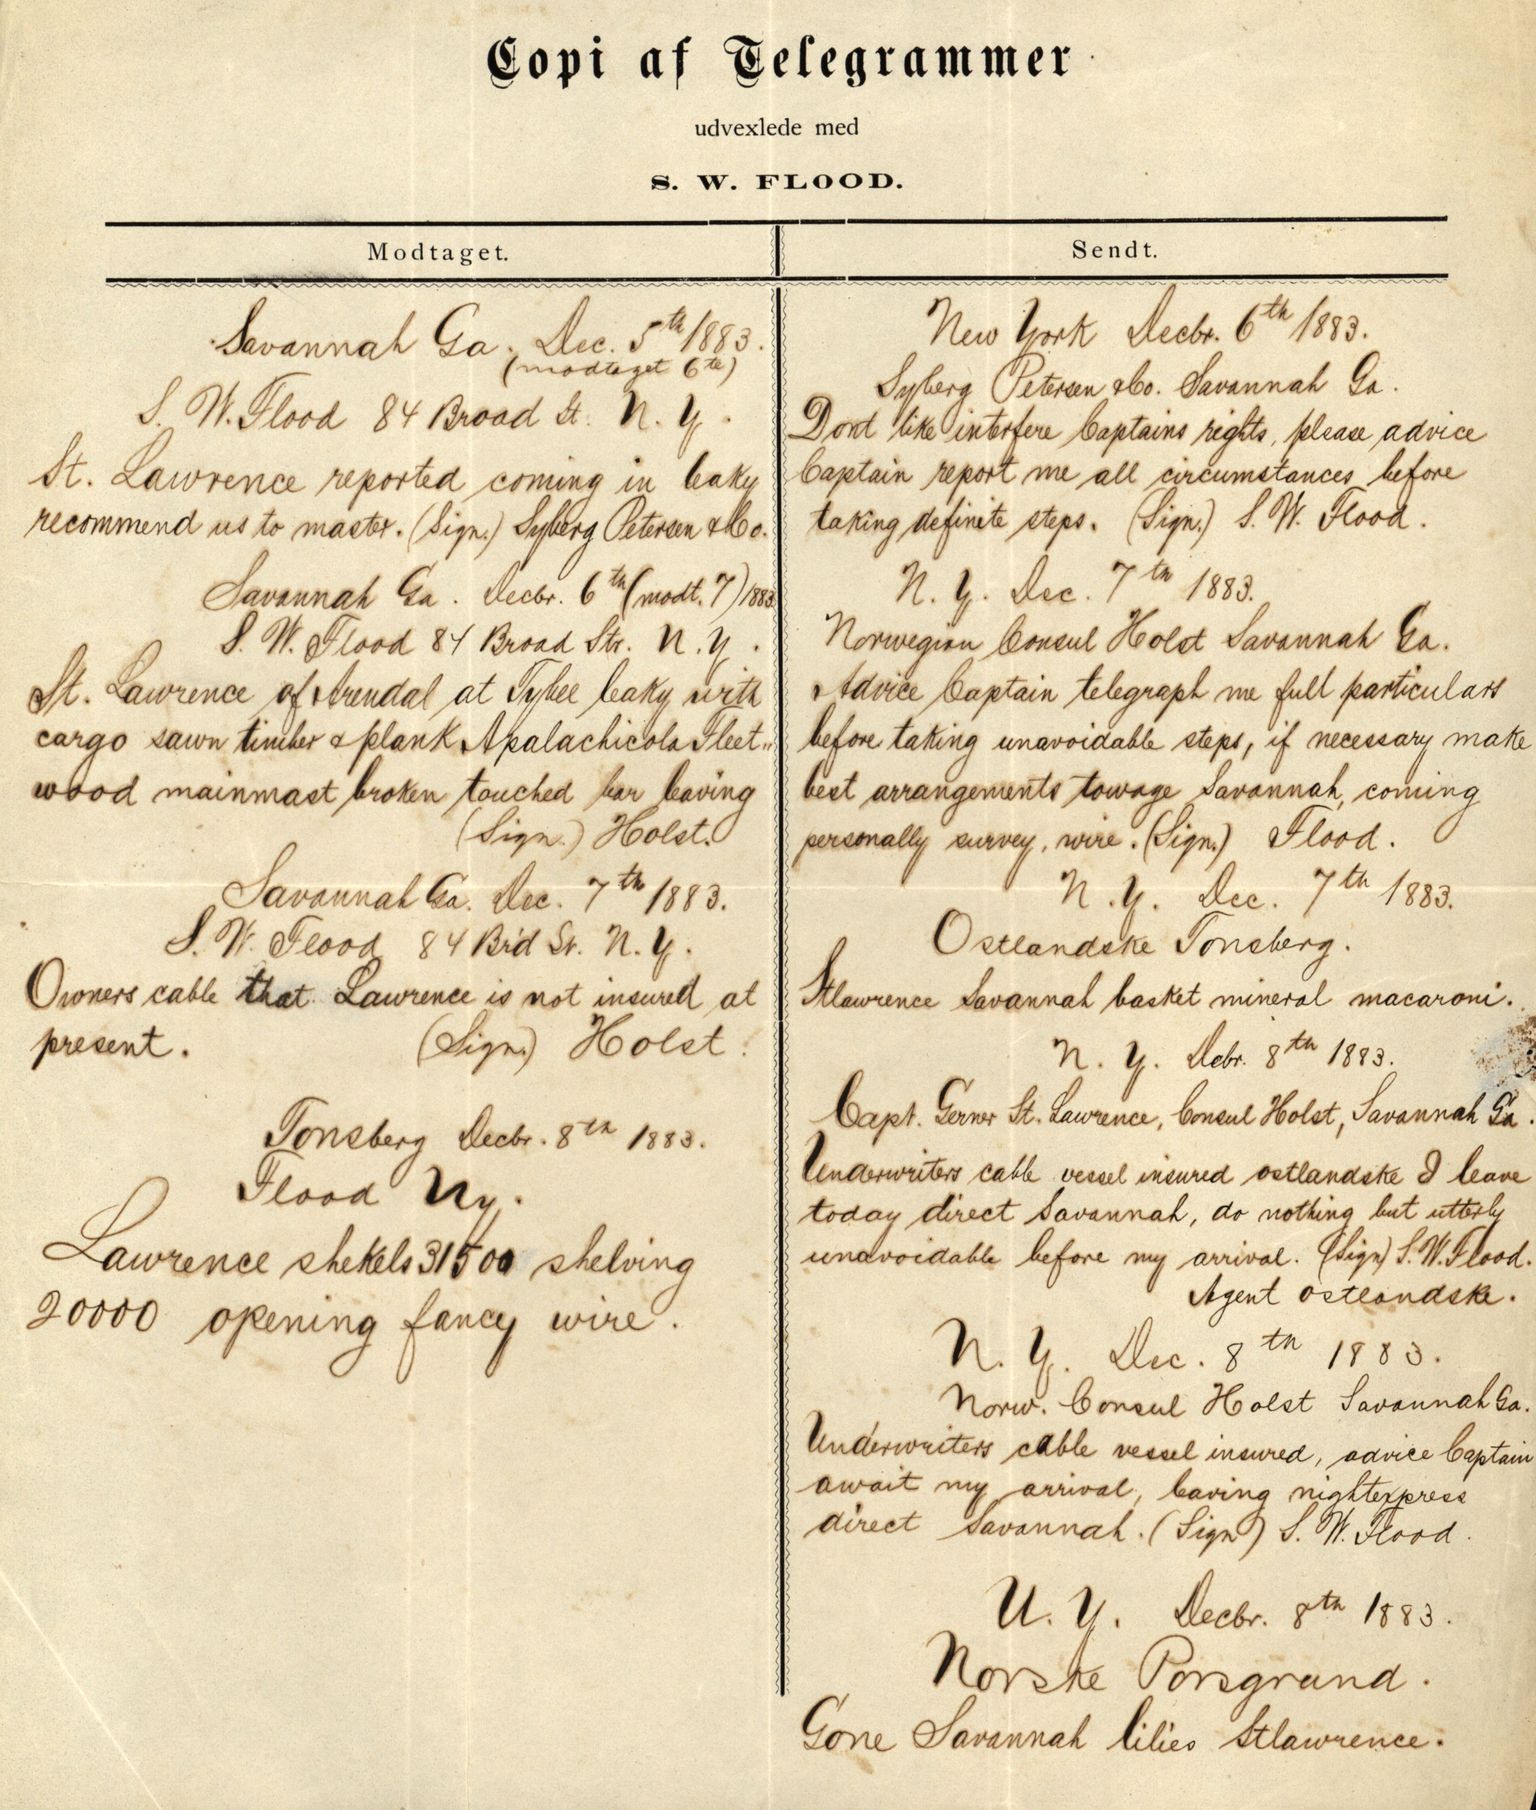 Copi af Telegrammer
udvexlede med
S. W. FLOOD.
Modtaget.
Savannah Ga. Dec. 5th 1883.
(modtaget 6te)
S. W. Flood 84 Broad St. N. Y.
St. Lawrence reported coming in leaky
recommend us to master. (Sign.) Syberg Petersen & Co.
Savannah Ga. Decbr. 6th (modt. 7) 1883
S. W. Flood 84 Broad Str. N. Y.
St. Lawrence of Arendal at Tybee leaky with
cargo sawn timber & plank Apalachicola Fleet„
wood mainmast broken touched bar leaving
(Sign.) Holst.
Savannah Ga. Dec. 7th 1883.
S. W. Flood 84 Br'd St. N. Y.
Owners cable that Lawrence is not insured at
present. (Sign.) Holst.
Tonsberg Decbr. 8th 1883.
Flood Ny.
Lawrence shekels 31500 shelving
20000 opening fancy wire.
Sendt.
New York Decbr. 6th 1883.
Syberg Petersen & Co. Savannah Ga.
Dont like interfere Captains rights, please advice
Captain report me all circumstances before
taking definite steps. (Sign.) S. W. Flood.
N. Y. Dec. 7th 1883.
Norwegian Consul Holst Savannah Ga.
Advice Captain telegraph me full particulars
before taking unavoidable steps, if necessary make
best arrangements towage Savannah, coming
personally survey, wire. (Sign.) Flood.
N. Y. Dec. 7th 1883.
Ostlandske Tonsberg.
Stlawrence Savannah basket mineral macaroni.
N. Y. Dcbr. 8th 1883.
Capt. Gerner St. Lawrence, Consul Holst, Savannah Ga.
Underwriters cable vessel insured ostlandske I leave
today direct Savannah, do nothing but utterly
unavoidable before my arrival. (Sign) S. W. Flood.
Agent ostlandske.
N. Y. Dec. 8th 1883.
Norw. Consul Holst Savannah Ga.
Underwriters cable vessel insured, advice Captain
await my arrival, leaving nightexpress
direct Savannah. (Sign) S. W. Flood.
N. Y. Decbr. 8th 1883.
Norske Porsgrund.
Gone Savannah lilies Stlawrence.